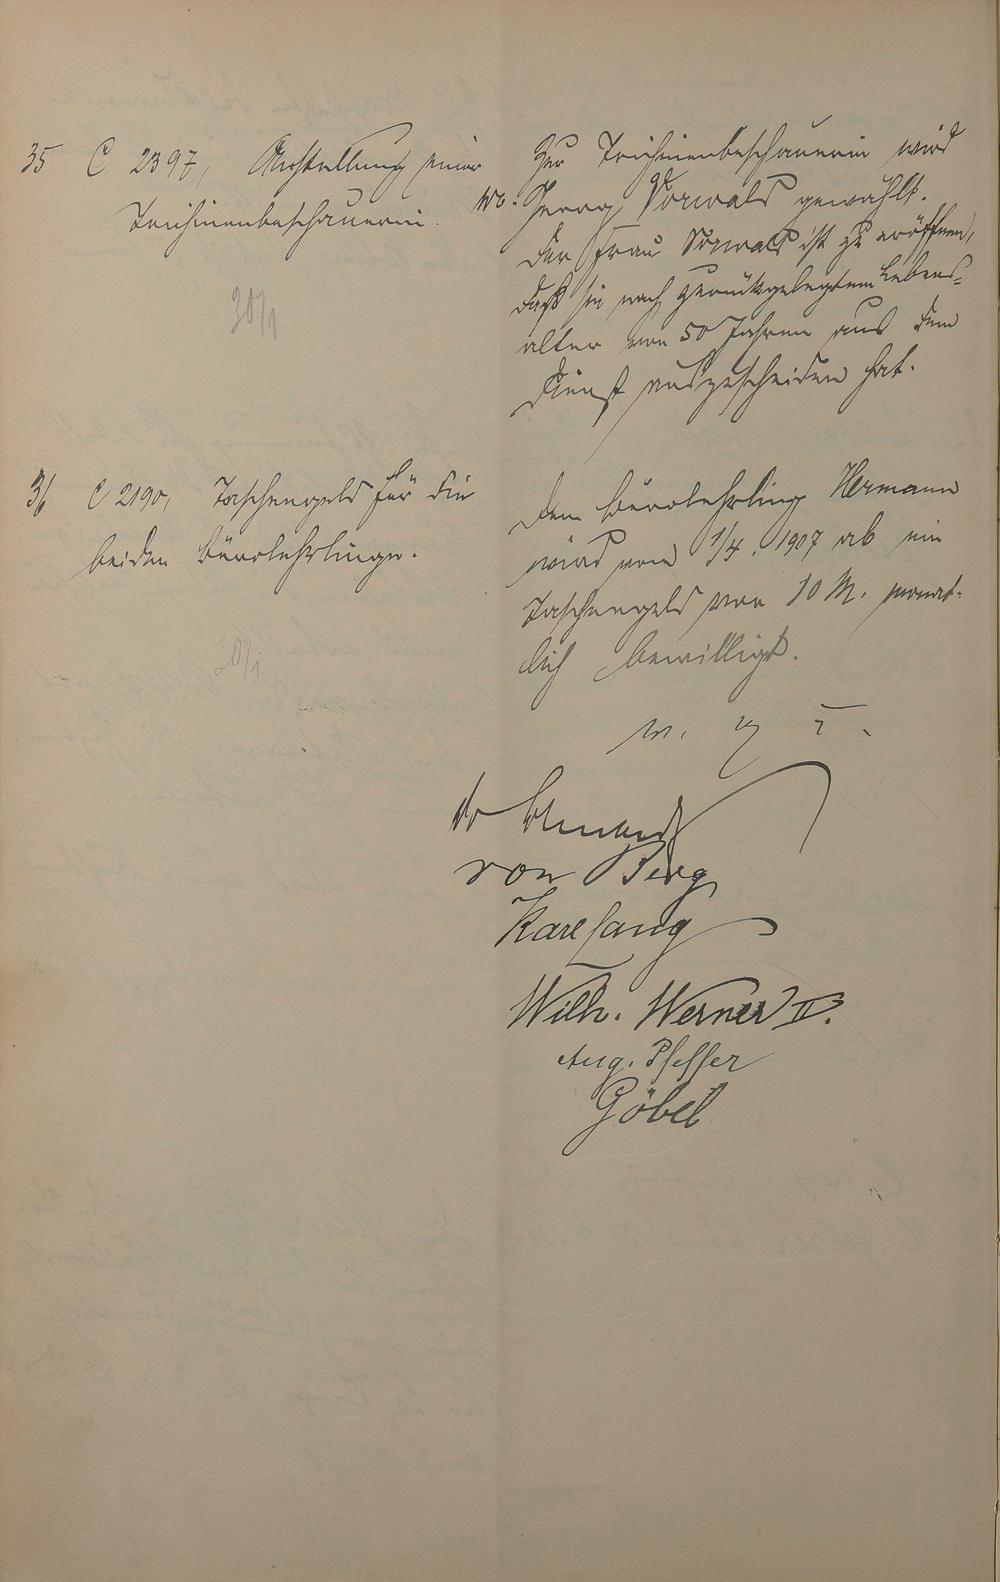 35 C 2397, Anstellung einer
Trichinenbeschauerin.
30/1
Zur Trichinenbeschauerin wird
Georg Vorwald gewählt.
Der Frau Vorwald ist zu eröffnen,
daß sie nach zurückgelegtem Lebens-
alter von 50 Jahren aus dem
Dienst auszuscheiden hat.
36 C 2190, Taschengeld für die
beiden Bürolehrlinge.
30/1
Dem Bürolehrling Hermann
wird vom 1/4. 1907 ab ein
Taschengeld von 10 M. monat-
lich bewilligt.
von Berg
Karl Lang
Wilh. Werner II.
Aug. Pfeffer
Göbel